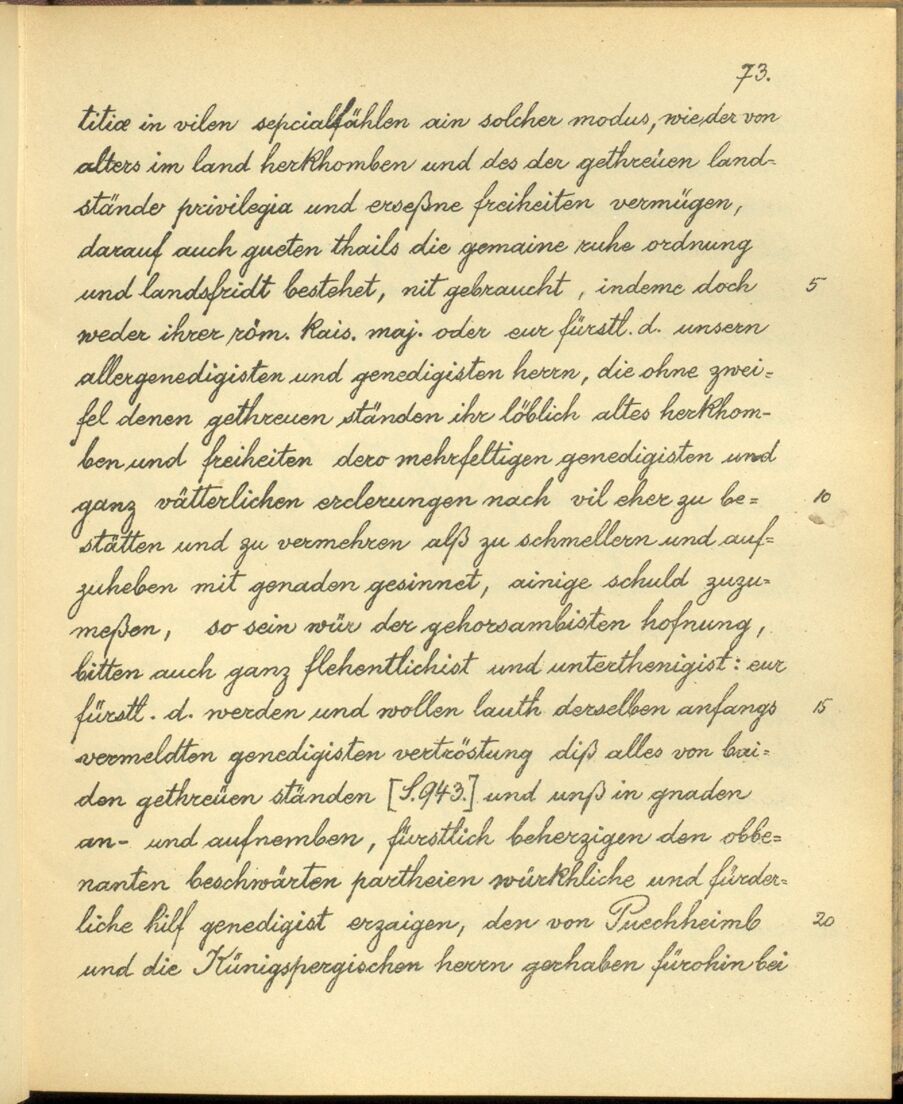 73.
titiæ in vilen sepcialfählen ain solcher modus, wie der von
alters im land herkhomben und des der gethreüen land-
stände privilegia und erseßne freiheiten vermügen,
darauf auch gueten thails die gemaine ruhe ordnung
und landsfridt bestehet, nit gebraucht, indeme doch 5
weder ihrer röm. kais. maj. oder eur fürstl. d. unsern
allergenedigisten und genedigisten herrn, die ohne zwei=
fel denen gethreuen ständen ihr löblich altes herkhom-
ben und freiheiten dero mehrfeltigen genedigisten und
ganz vätterlichen erclerungen nach vil eher zu be= 10
stätten und zu vermehren alß zu schmellern und auf=
zuheben mit genaden gesinnet, ainige schuld zuzu=
meßen, so sein wür der gehorsambisten hofnung,
bitten auch ganz flehentlichist und unterthenigist: eur
fürstl. d. werden und wollen lauth derselben anfangs 15
vermeldten genedigisten vertröstung diß alles von bai=
den gethreüen ständen [S.943.] und unß in gnaden
an- und aufnemben, fürstlich beherzigen den obbe=
nanten beschwärten partheien würkhliche und fürder=
liche hilf genedigist erzaigen, den von Puechheimb 20
und die Künigspergischen herrn gerhaben fürohin bei